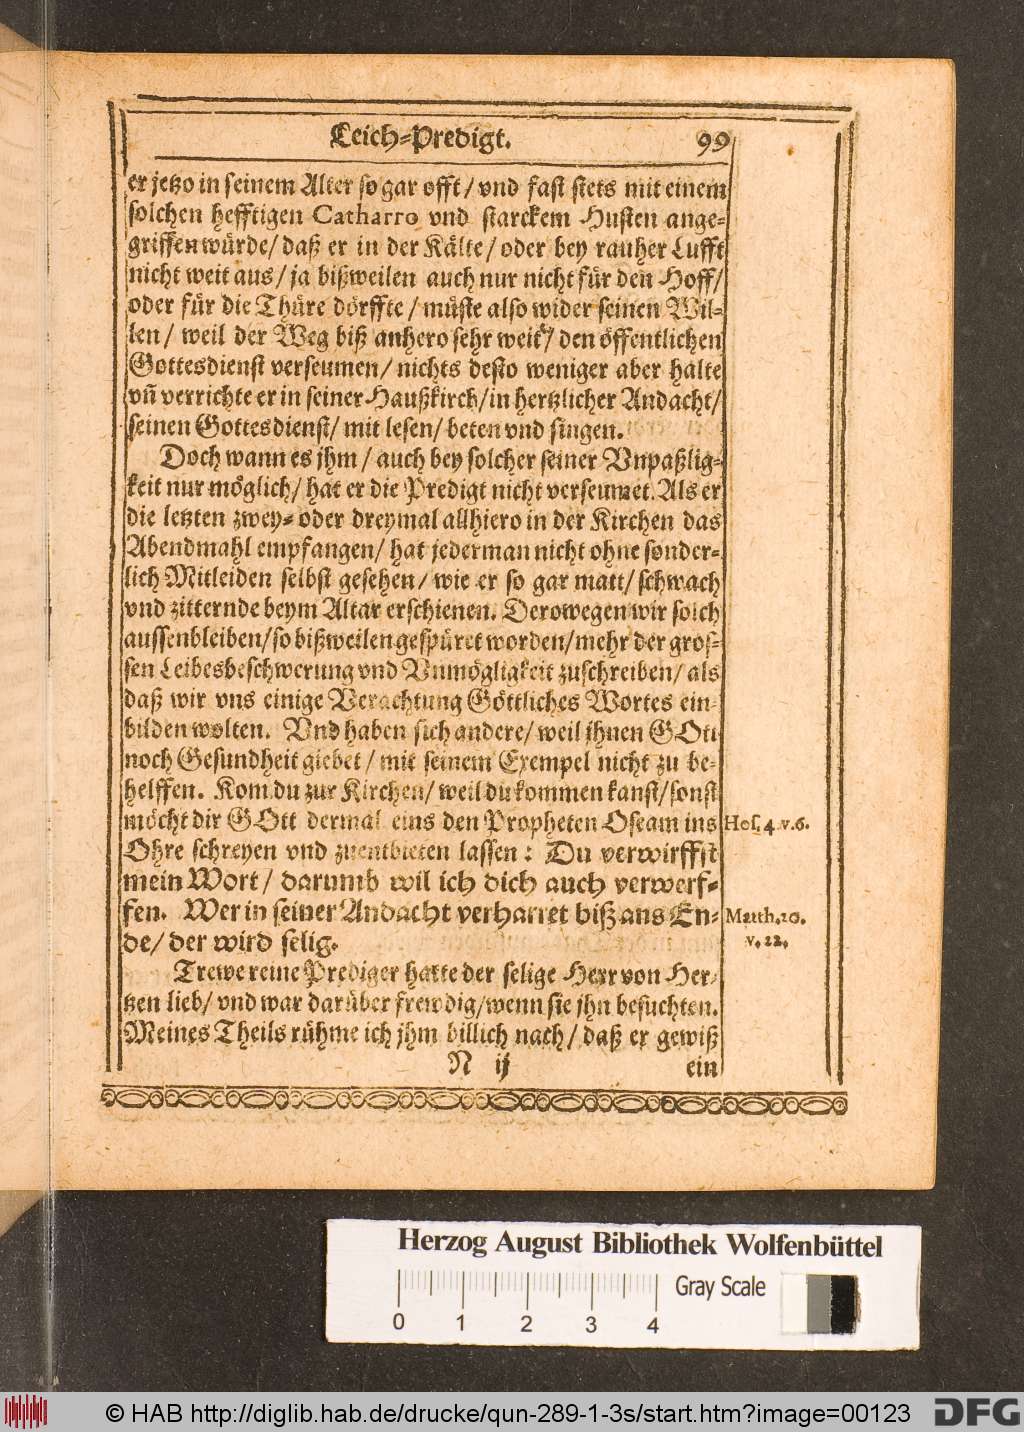 Leich-Predigt. 99
er jetzo in seinem Alter so gar offt/ vnd fast stets mit einem
solchen hefftigen Catharro vnd starckem Husten ange-
griffen würde/ daß er in der Kälte/ oder bey rauher Lufft
nicht weit aus/ ja bißweilen auch nur nicht für den Hoff/
oder für die Thüre dörffte/ müste also wider seinen Wil-
len/ weil der Weg biß anhero sehr weit/ den öffentlichen
Gottesdienst verseumen/ nichts desto weniger aber halte
vñ verrichte er in seiner Haußkirch/ in hertzlicher Andacht/
seinen Gottesdienst/ mit lesen/ beten vnd singen.
Doch wann es jhm/ auch bey solcher seiner Vnpaßlig-
keit nur möglich/ hat er die Predigt nicht verseumet. Als er
die letzten zwey- oder dreymal allhiero in der Kirchen das
Abendmahl empfangen/ hat jederman nicht ohne sonder-
lich Mitleiden selbst gesehen/ wie er so gar matt/ schwach
vnd zitternde beym Altar erschienen. Derowegen wir solch
aussenbleiben/ so bißweilen gespüret worden/ mehr der gros-
sen Leibesbeschwerung vnd Vnmögligkeit zuschreiben/ als
daß wir vns einige Verachtung Göttliches Wortes ein-
bilden wolten. Vnd haben sich andere/ weil ihnen GOtt
noch Gesundheit giebet/ mit seinem Exempel nicht zu be-
helffen. Kom du zur Kirchen/ weil du kommen kanst/ sonst
möcht dir GOtt dermal eins den Propheten Oseam ins Hos. 4. v. 6.
Ohre schreyen vnd zuentbieten lassen: Du verwirffst
mein Wort/ darumb wil ich dich auch verwerf-
fen. Wer in seiner Andacht verharret biß ans En- Matth. 10.
de/ der wird selig. v. 22.
Trewe reine Prediger hatte der selige Herr von Her-
tzen lieb/ vnd war darüber frewdig/ wenn sie jhn besuchten.
Meines Theils rühme ich jhm billich nach/ daß er gewiß
N ij ein
Herzog August Bibliothek Wolfenbüttel
Gray Scale
0 1 2 3 4
© HAB http://diglib.hab.de/drucke/qun-289-1-3s/start.htm?image=00123 DFG